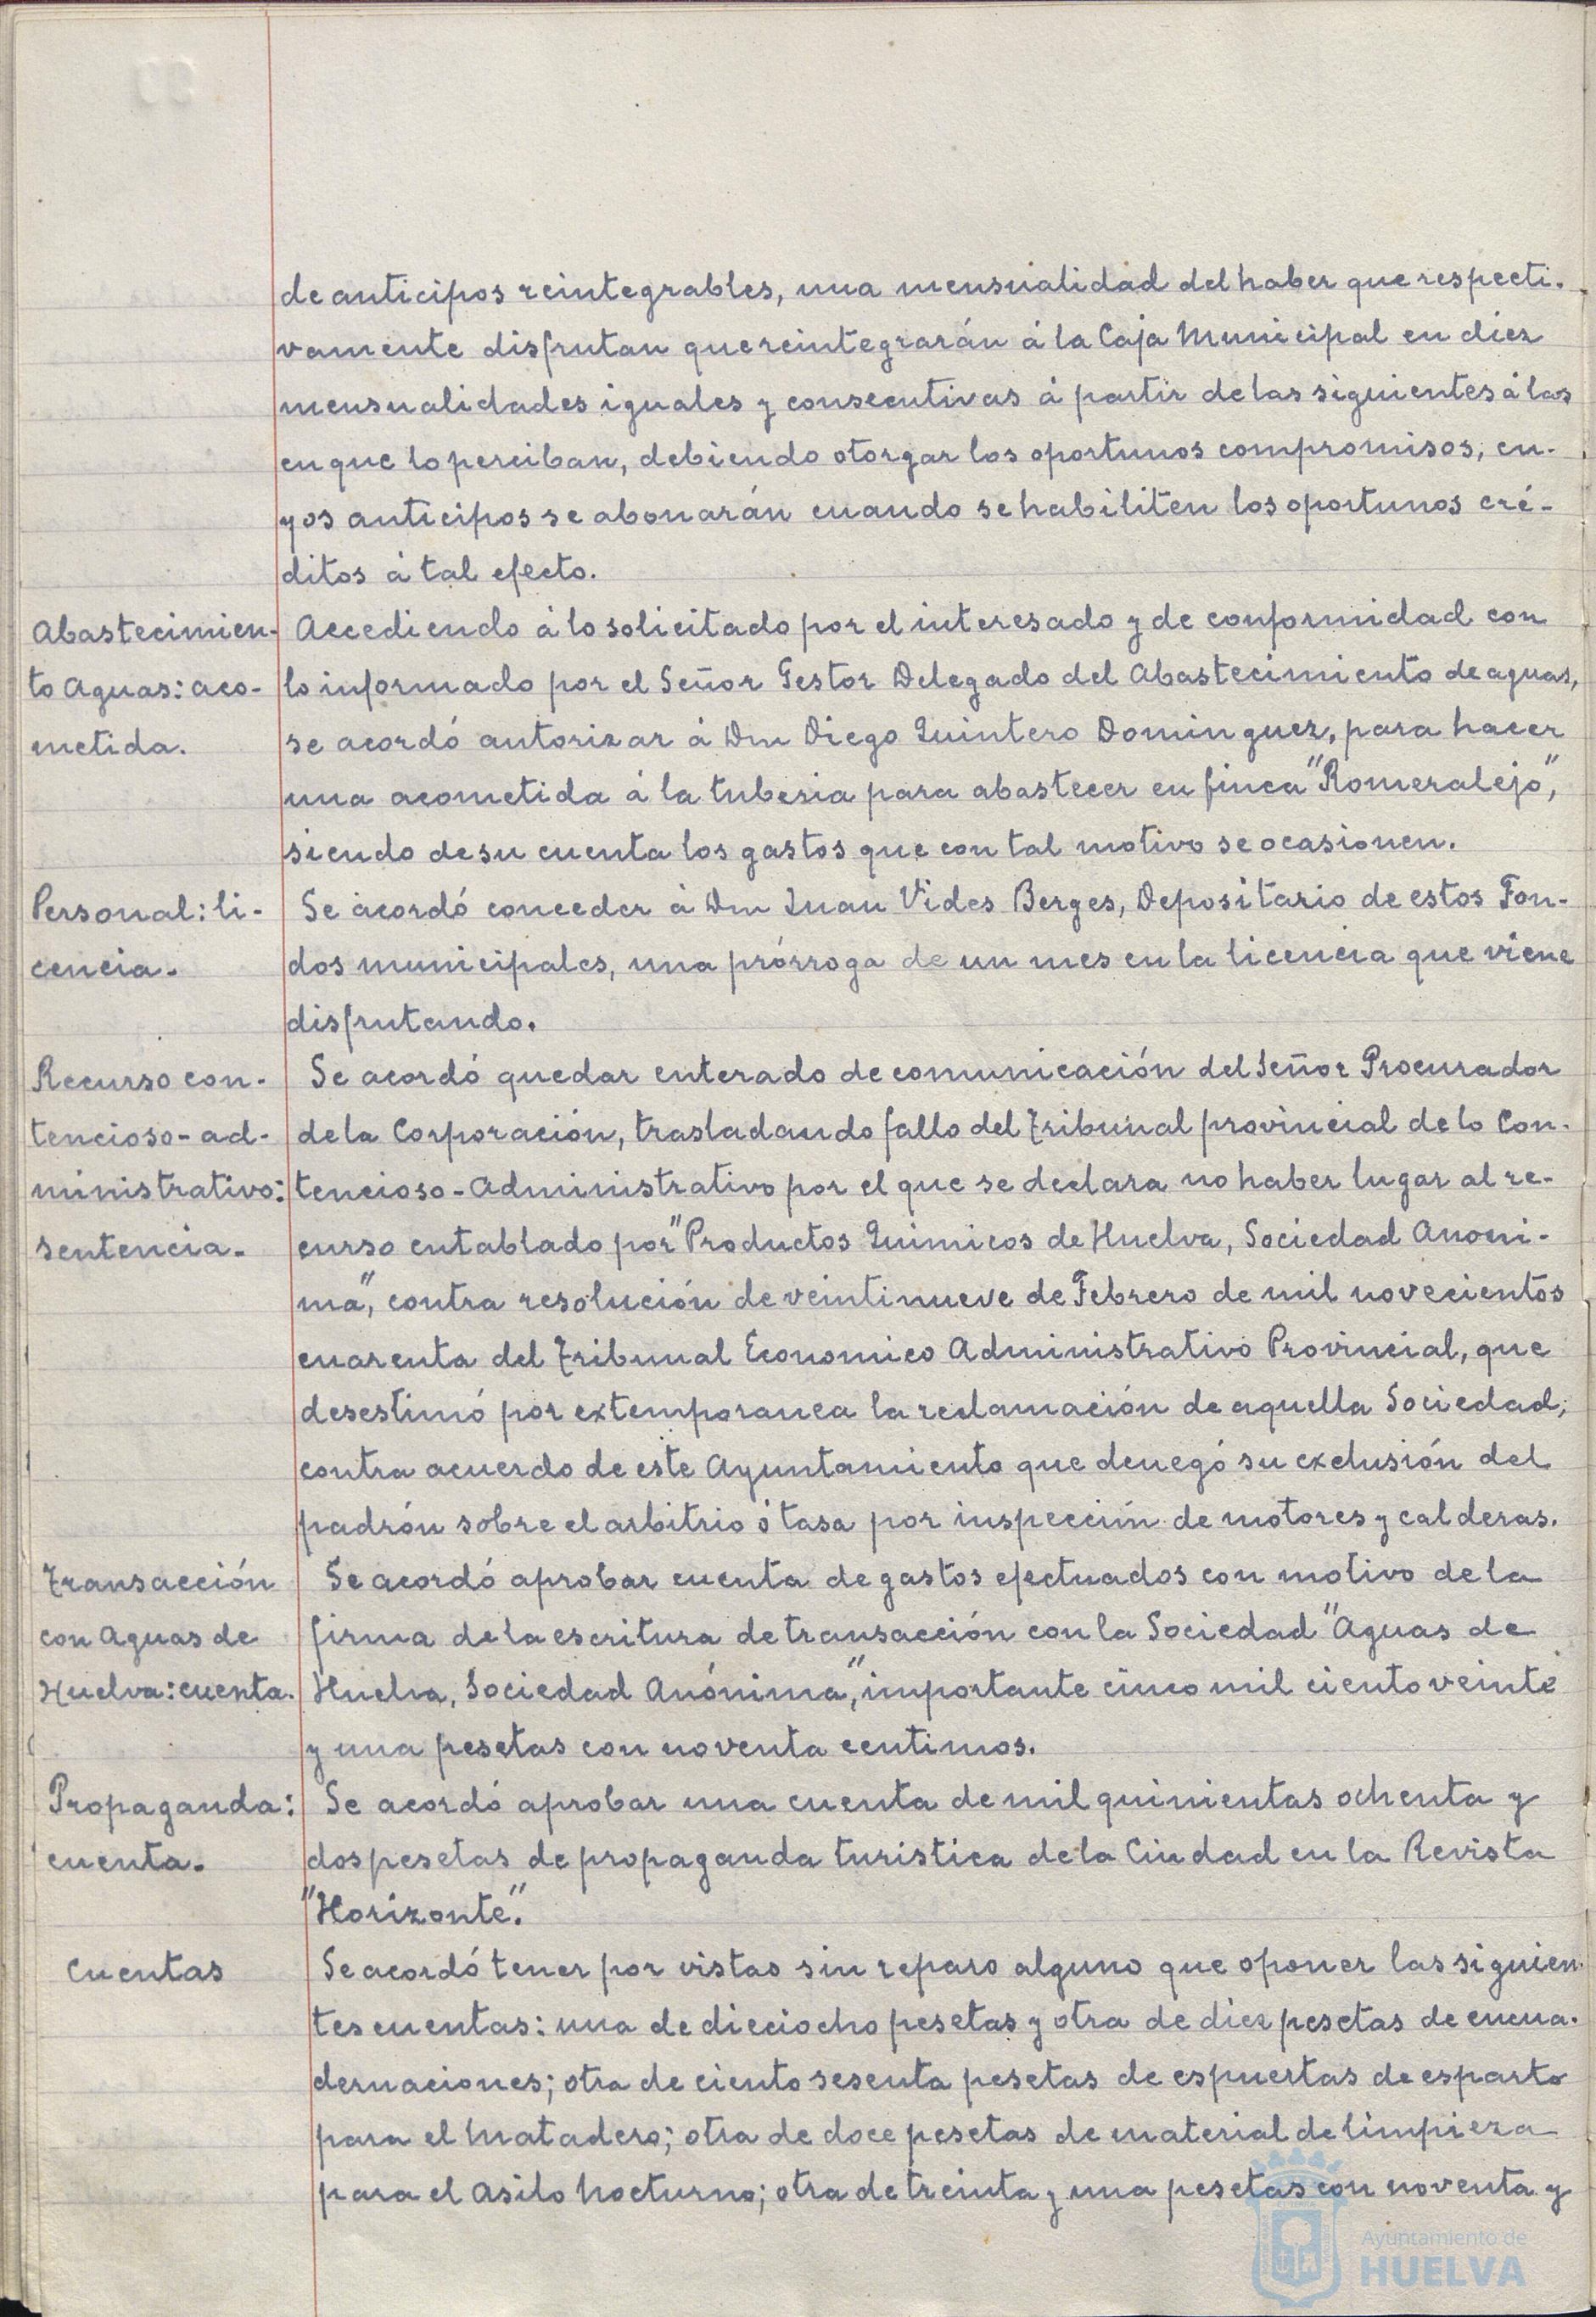 de anticipos reintegrables, una mensualidad del haber que respecti-
vamente disfrutan que reintegrarán á la Caja Municipal en diez
mensualidades iguales y consecutivas á partir de las siguientes á las
en que lo perciban, debiendo otorgar los oportunos compromisos, cu-
yos anticipos se abonarán cuando se habiliten los oportunos cré-
ditos á tal efecto.
Abastecimien-
to Aguas: aco-
metida.
Accediendo á lo solicitado por el interesado y de conformidad con
lo informado por el Señor Gestor Delegado del Abastecimiento de aguas,
se acordó autorizar á Don Diego Quintero Dominguez, para hacer
una acometida á la tuberia para abastecer en finca "Romeralejo",
siendo de su cuenta los gastos que con tal motivo se ocasionen.
Personal: li-
cencia.
Se acordó conceder á Don Juan Vides Berges, Depositario de estos Fon-
dos municipales, una prórroga de un mes en la licencia que viene
disfrutando.
Recurso con-
tencioso-ad-
ministrativo:
sentencia.
Se acordó quedar enterado de comunicación del Señor Procurador
de la Corporación, trasladando fallo del Tribunal provincial de lo Con-
tencioso-Administrativo por el que se declara no haber lugar al re-
curso entablado por "Productos Quimicos de Huelva, Sociedad Anoni-
ma", contra resolución de veintinueve de Febrero de mil novecientos
cuarenta del Tribunal Economico Administrativo Provincial, que
desestimó por extemporanea la reclamación de aquella Sociedad,
contra acuerdo de este Ayuntamiento que denegó su exclusión del
padrón sobre el arbitrio ó tasa por inspección de motores y calderas.
Transacción
con Aguas de
Huelva: cuenta.
Se acordó aprobar cuenta de gastos efectuados con motivo de la
firma de la escritura de transacción con la Sociedad "Aguas de
Huelva, Sociedad Anónima", importante cinco mil ciento veinte
y una pesetas con noventa centimos.
Propaganda:
cuenta.
Se acordó aprobar una cuenta de mil quinientas ochenta y
dos pesetas de propaganda turistica de la Ciudad en la Revista
"Horizonte".
Cuentas
Se acordó tener por vistas sin reparo alguno que oponer las siguien-
tes cuentas: una de dieciocho pesetas y otra de diez pesetas de encua-
dernaciones; otra de ciento sesenta pesetas de espuertas de esparto
para el Matadero; otra de doce pesetas de material de limpieza
para el Asilo Nocturno; otra de treinta y una pesetas con noventa y
Ayuntamiento de
HUELVA